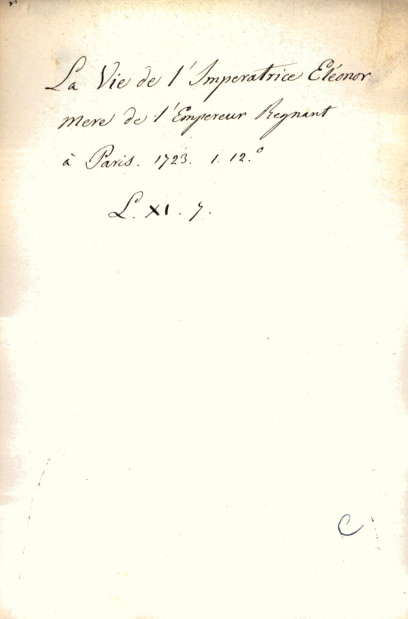 La Vie de l'Imperatrice Eléonor
mere de l'Empereur Regnant
à Paris. 1723. 1. 12.º
L. XI. 7.
C